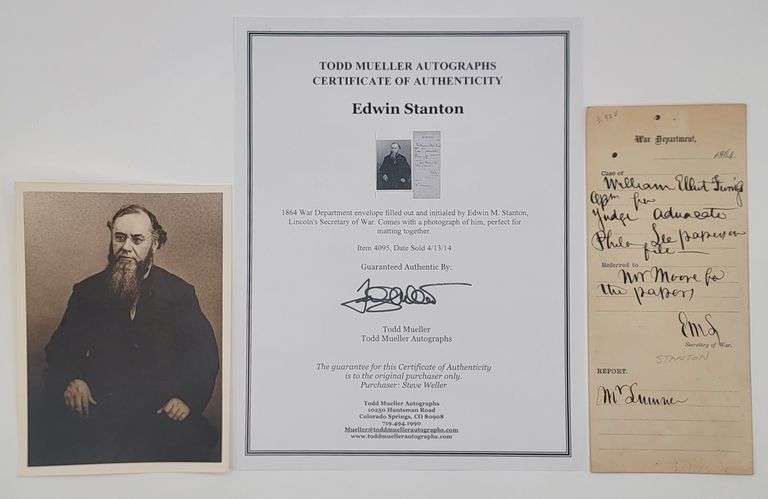 TODD MUELLER AUTOGRAPHS
CERTIFICATE OF AUTHENTICITY
Edwin Stanton
1864 War Department envelope filled out and initialed by Edwin M. Stanton,
Lincoln's Secretary of War. Comes with a photograph of him, perfect for
matting together.
Item 4095, Date Sold 4/13/14
Guaranteed Authentic By:
Todd Mueller
Todd Mueller Autographs
The guarantee for this Certificate of Authenticity
is to the original purchaser only.
Purchaser: Steve Weller
Todd Mueller Autographs
10250 Huntsman Road
Colorado Springs, CO 80908
719.494.1990
Mueller@toddmuellerautographs.com
www.toddmuellerautographs.com
War Department,
1864
Case of
William Elliot
for
Judge Advocate
Phila See papers on
file
Referred to
Mr Moore for
the papers
EMS
Secretary of War.
STANTON
REPORT.
Mr Sumner